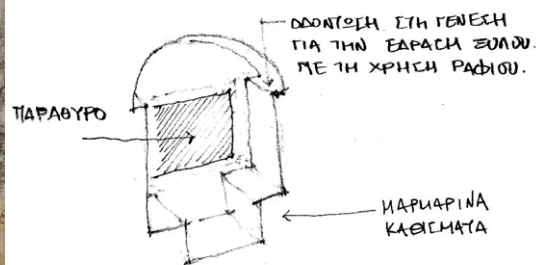 ΟΔΟΝΤΩΣΗ ΣΤΗ ΓΕΝΕΣΗ
ΓΙΑ ΤΗΝ ΕΔΡΑΣΗ ΞΥΛΟΥ.
ΜΕ ΤΗ ΧΡΗΣΗ ΡΑΦΙΟΥ.
ΠΑΡΑΘΥΡΟ
ΜΑΡΜΑΡΙΝΑ
ΚΑΘΙΣΜΑΤΑ